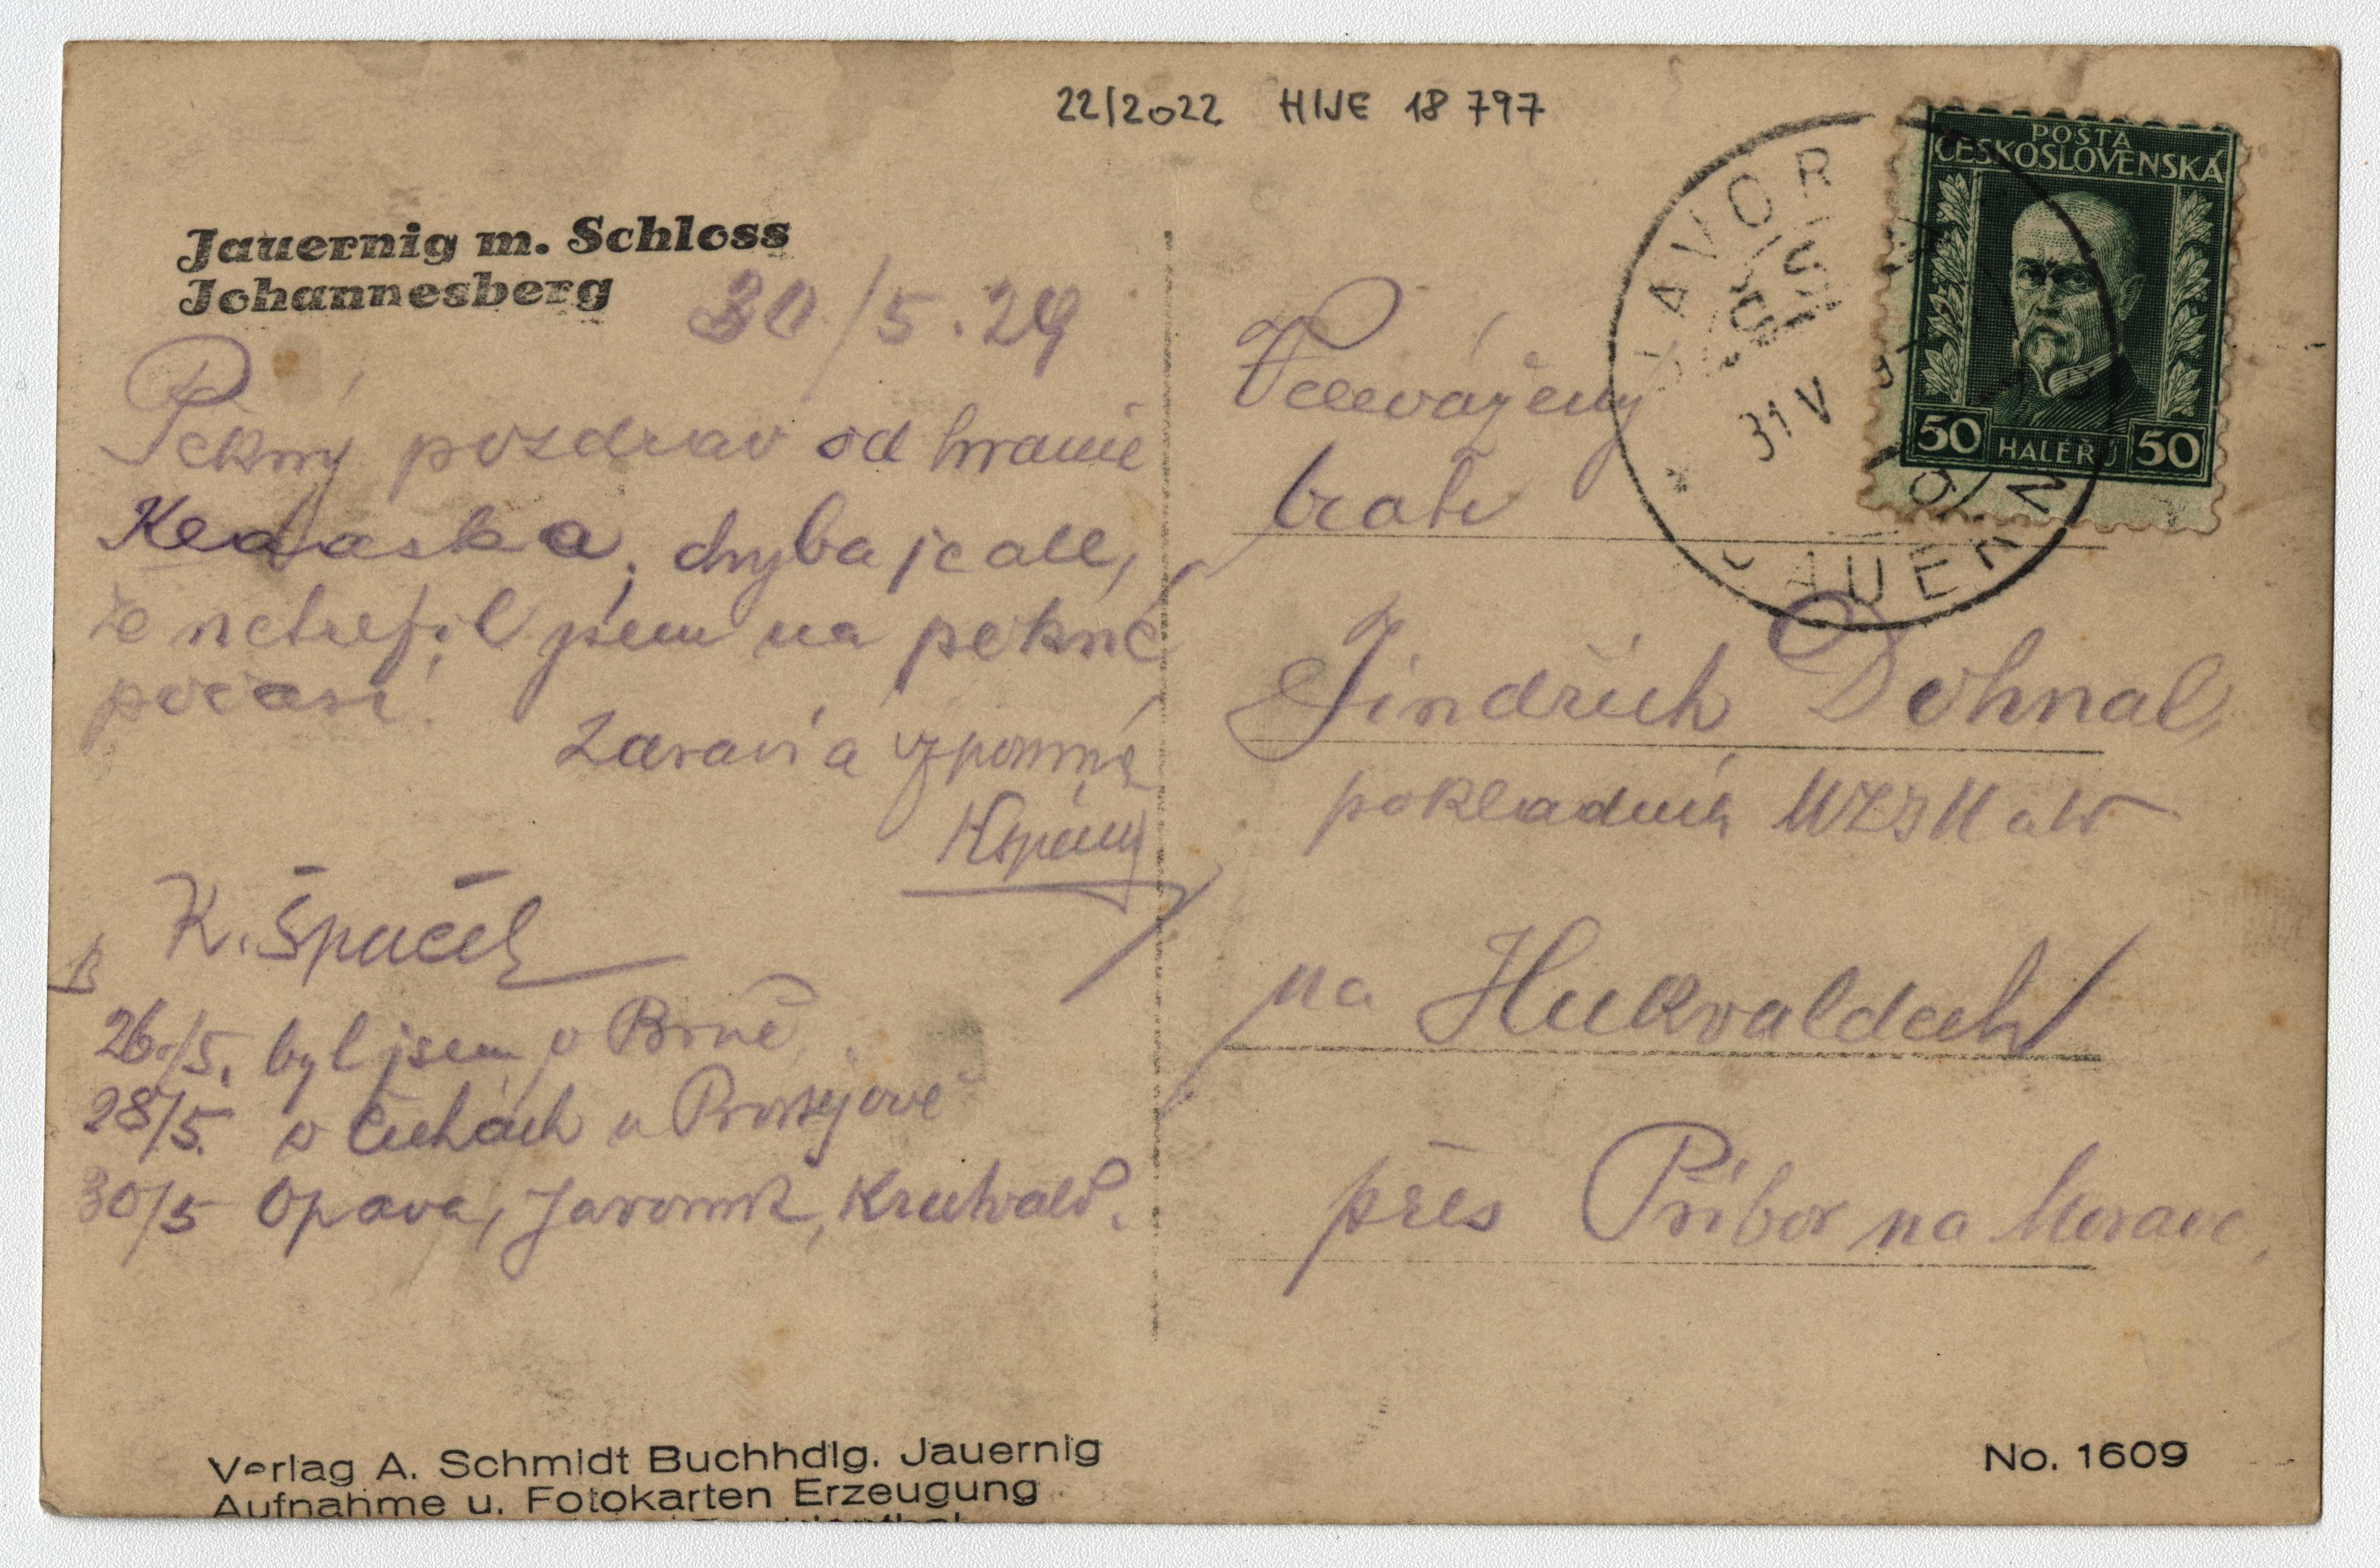 22/2022 HIJE 18 797
Jauernig m. Schloss
Johannesberg
30/5.29
Pěkný pozdrav od hranic
chyba je ale,
že netrefil jsem na pěkné
počasí.
Zdraví a vzpomíná
K. Špaček
26./5. byl jsem v Brně
28/5. v Čechách u Prostějově
30/5 Opava, Javorník,
Verlag A. Schmidt Buchhdlg. Jauernig
Aufnahme u. Fotokarten Erzeugung
POŠTA
ČESKOSLOVENSKÁ
50 HALÉŘŮ 50
JAVOR
31 V
JAUERN
Velevážený
bratr
Jindřich Dohnal,
pokladník
na Hukvaldech
přes Příbor na Moravě,
No. 1609